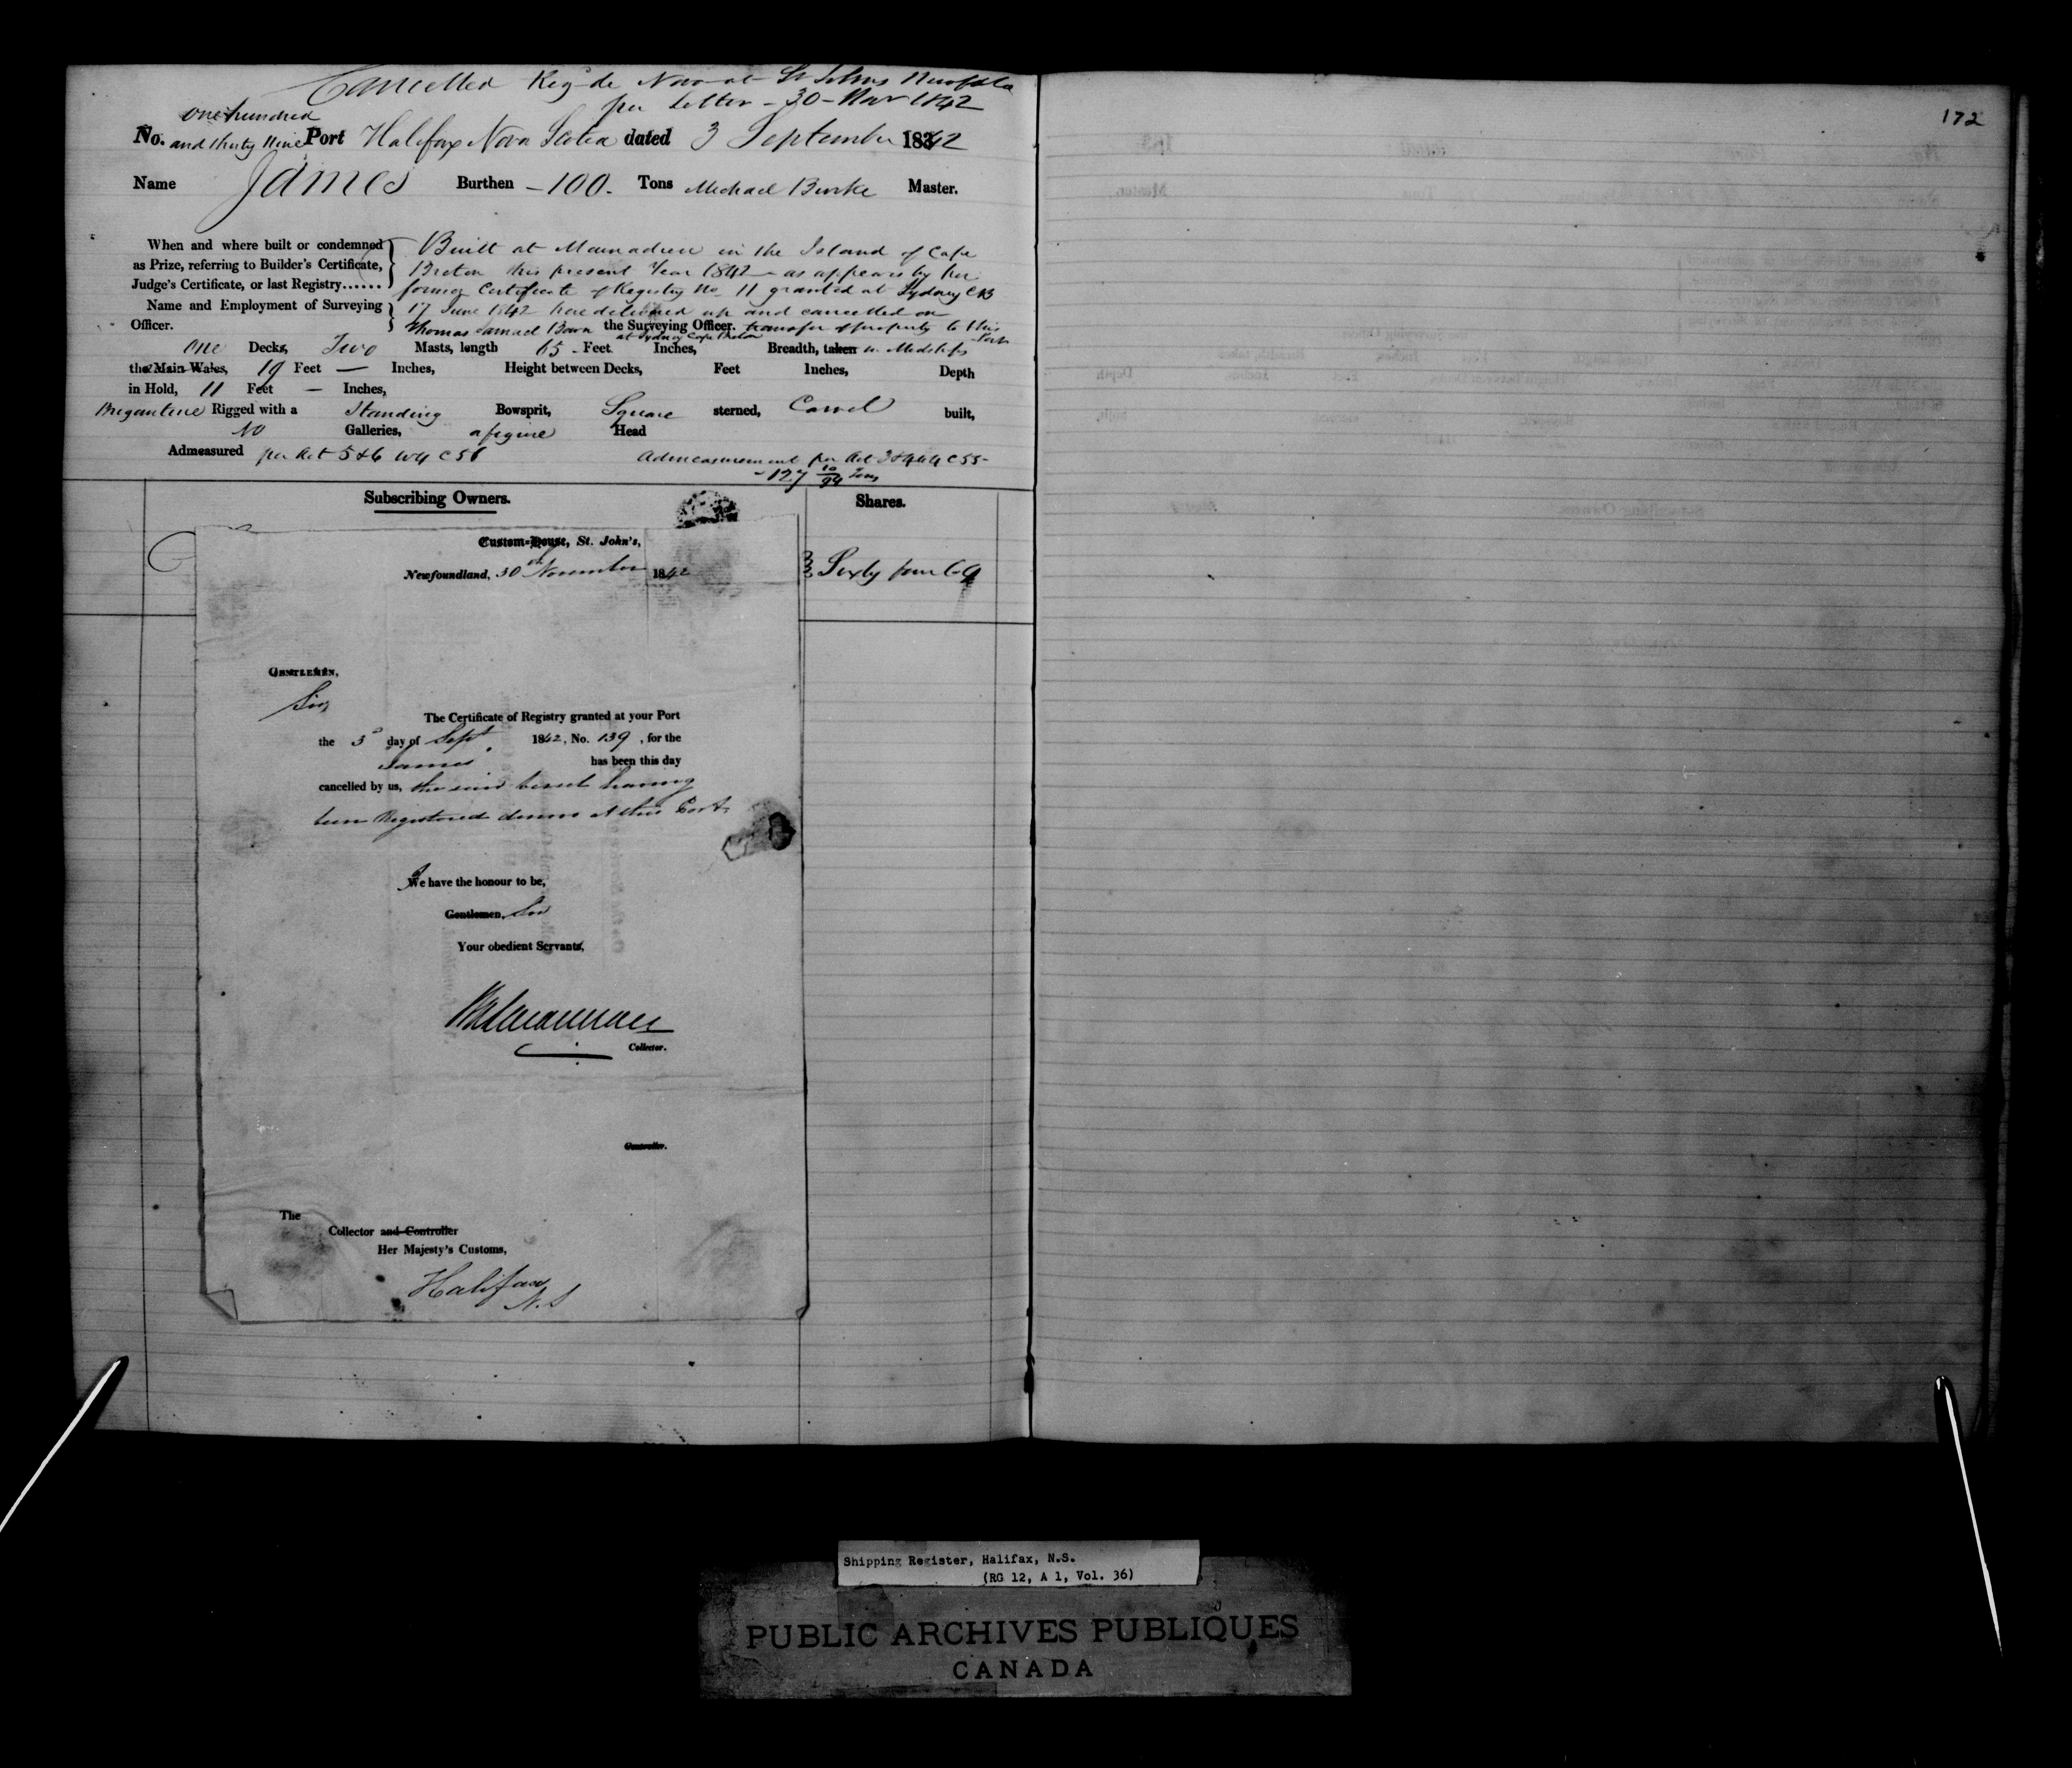 Cancelled Reg de Novo at St Johns Newfdld
per Letter - 30 - Nov 1842
172
one hundred
No. and thirty Nine Port Halifax Nova Scotia dated 3 September 1842
Name James Burthen - 100 - Tons Michael Burke Master.
When and where built or condemned
as Prize, referring to Builder's Certificate,
Judge's Certificate, or last Registry......
Built at Mainadieu in the Island of Cape
Breton this present Year 1842 - as appears by her
former Certificate of Registry No 11 granted at Sydney CB
Name and Employment of Surveying
Officer.
17 June 1842 here delivered up and cancelled on
Thomas Samuel Bown the Surveying Officer. transfer of property to this
at Sydney Cape Breton Port
One Decks, Two Masts, length 65 - Feet Inches, Breadth, taken in Midships
the Main Wales, 19 Feet — Inches, Height between Decks, Feet Inches, Depth
in Hold, 11 Feet — Inches,
Brigantine Rigged with a Standing Bowsprit, Square sterned, Carvel built,
No Galleries, a figure Head
Admeasured per Act 5 & 6 W4 C 56 Admeasurement per Act 3 & 4 W4 C 55 -
- 127 10/94 Tons
Subscribing Owners. Shares.
Sixty four 64
Custom-House, St. John's,
Newfoundland, 30th November 1842
GENTLEMEN,
Sir,
The Certificate of Registry granted at your Port
the 3d day of Sept 1842, No. 139, for the
James has been this day
cancelled by us, the said vessel having
been Registered denovo at this Port.
I
We have the honour to be,
Gentlemen, Sir
Your obedient Servants,
Collector.
Controller.
The
Collector and Controller
Her Majesty's Customs,
Halifax
N.S
Shipping Register, Halifax, N.S.
(RG 12, A 1, Vol. 36)
PUBLIC ARCHIVES PUBLIQUES
CANADA